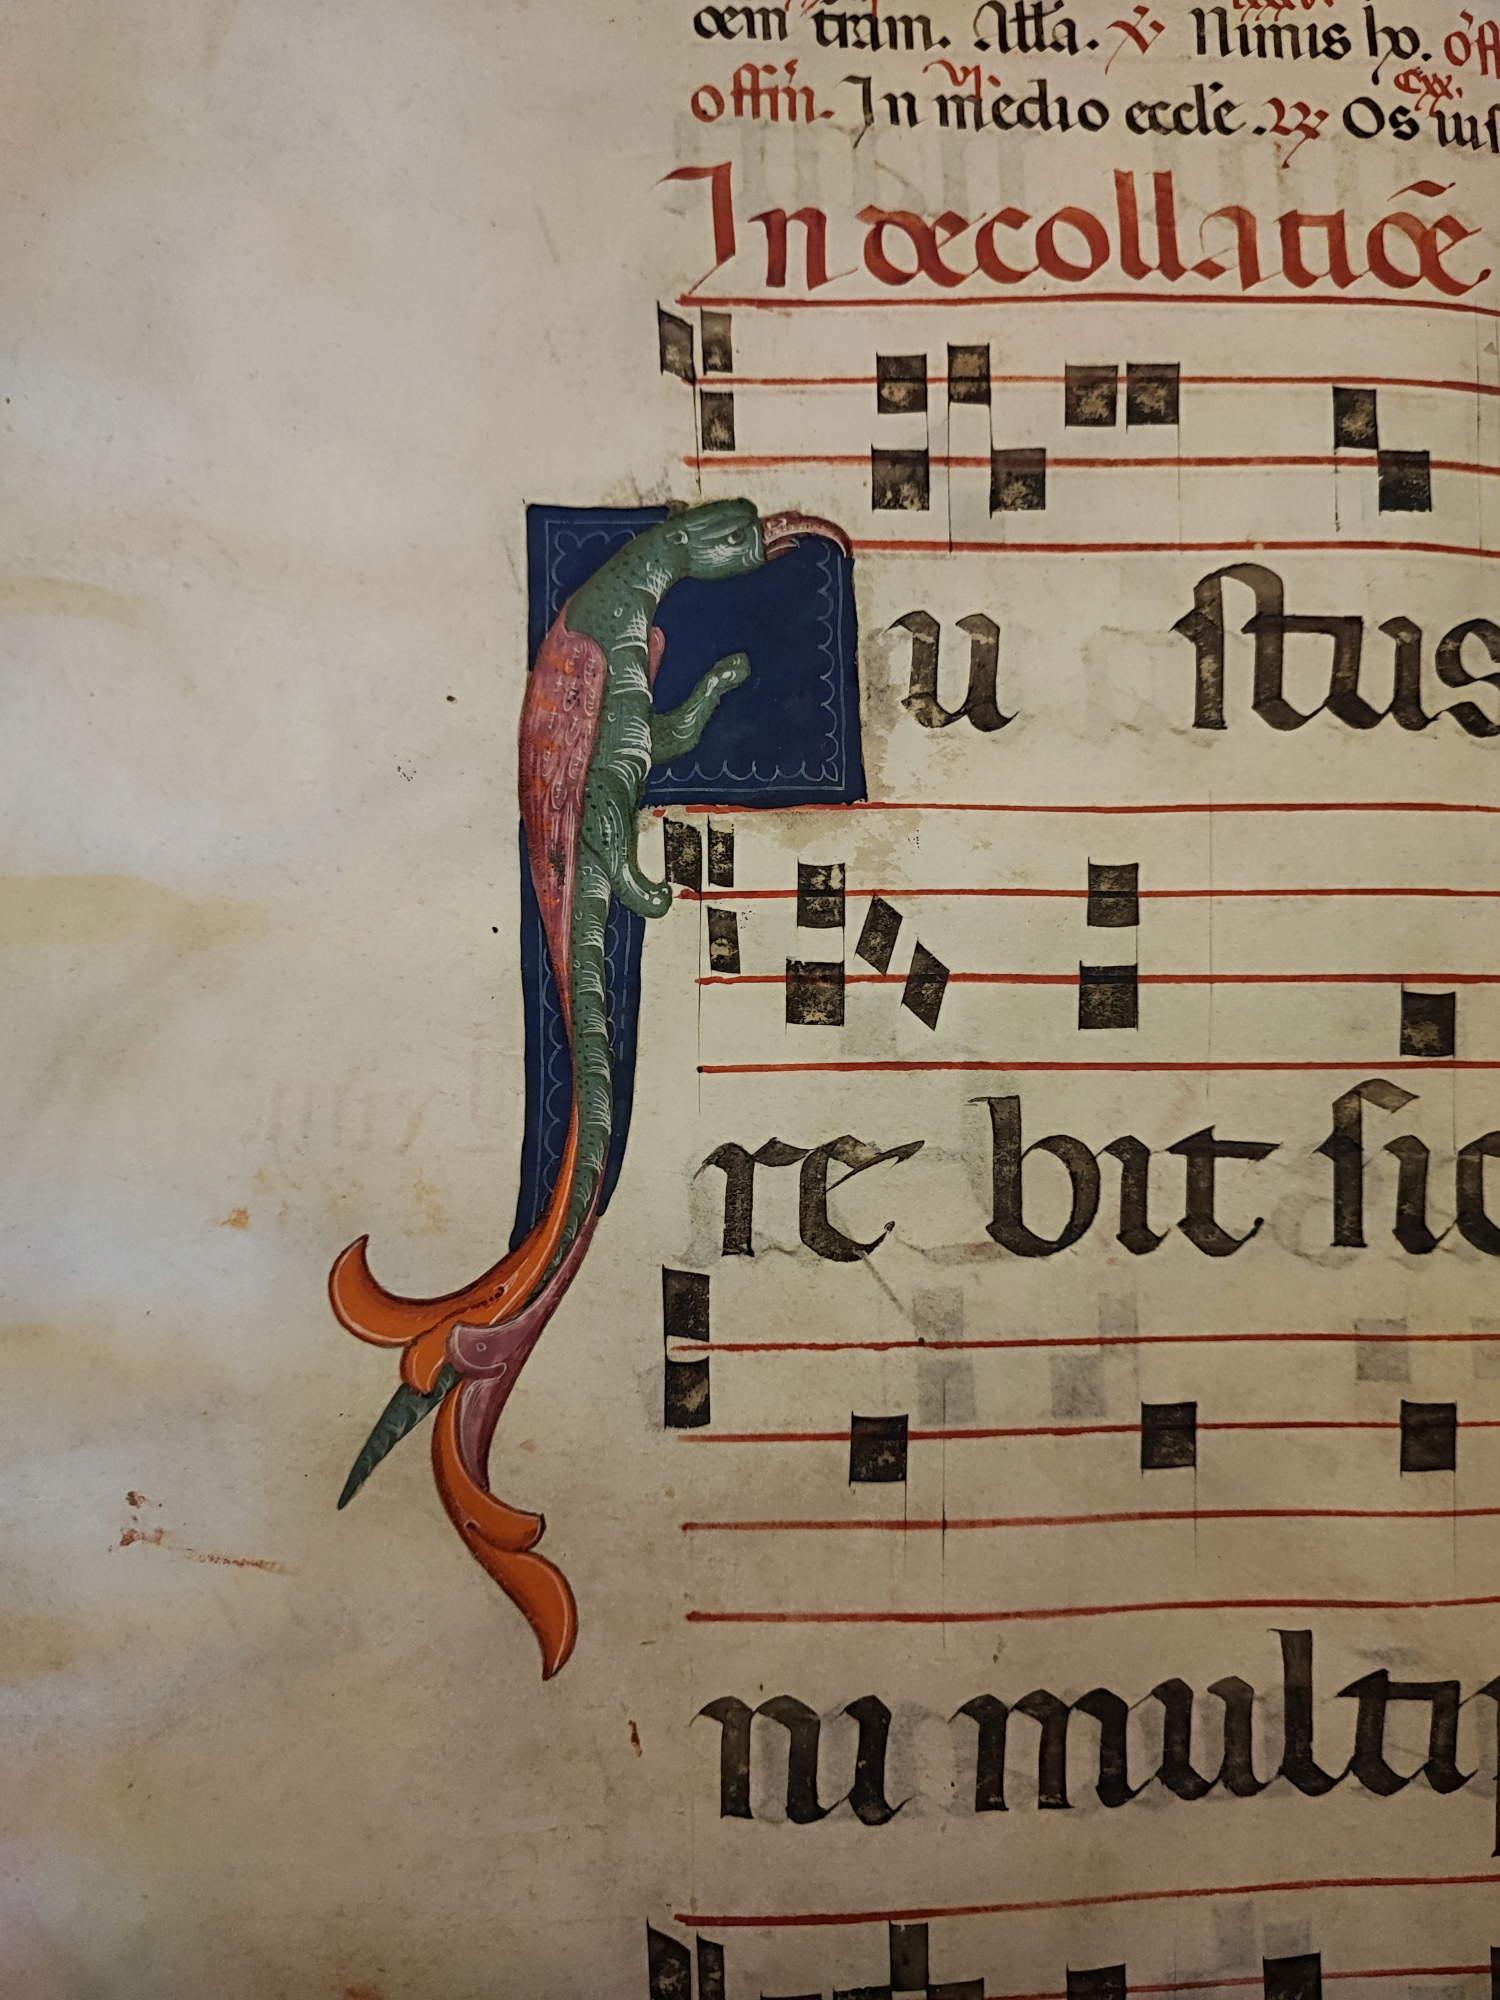 oem tr̄am. All'a. ℣ Nimis ho. off
offm̄. In medio eccl'e. ℟ Os ius
In decollatiõe
Iu stus
re bit sic
ni multip